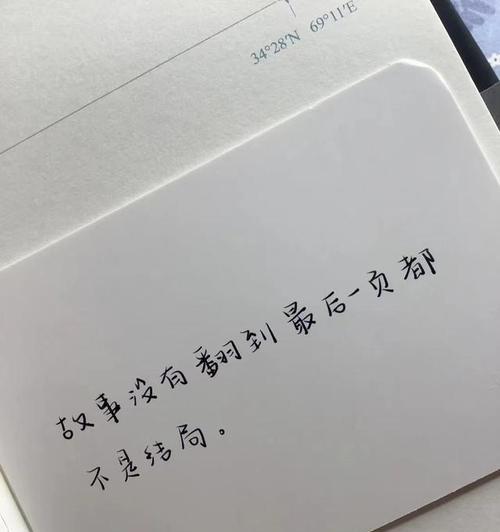 34°28′N 69°11′E
故事没有翻到最后一页都
不是结局。